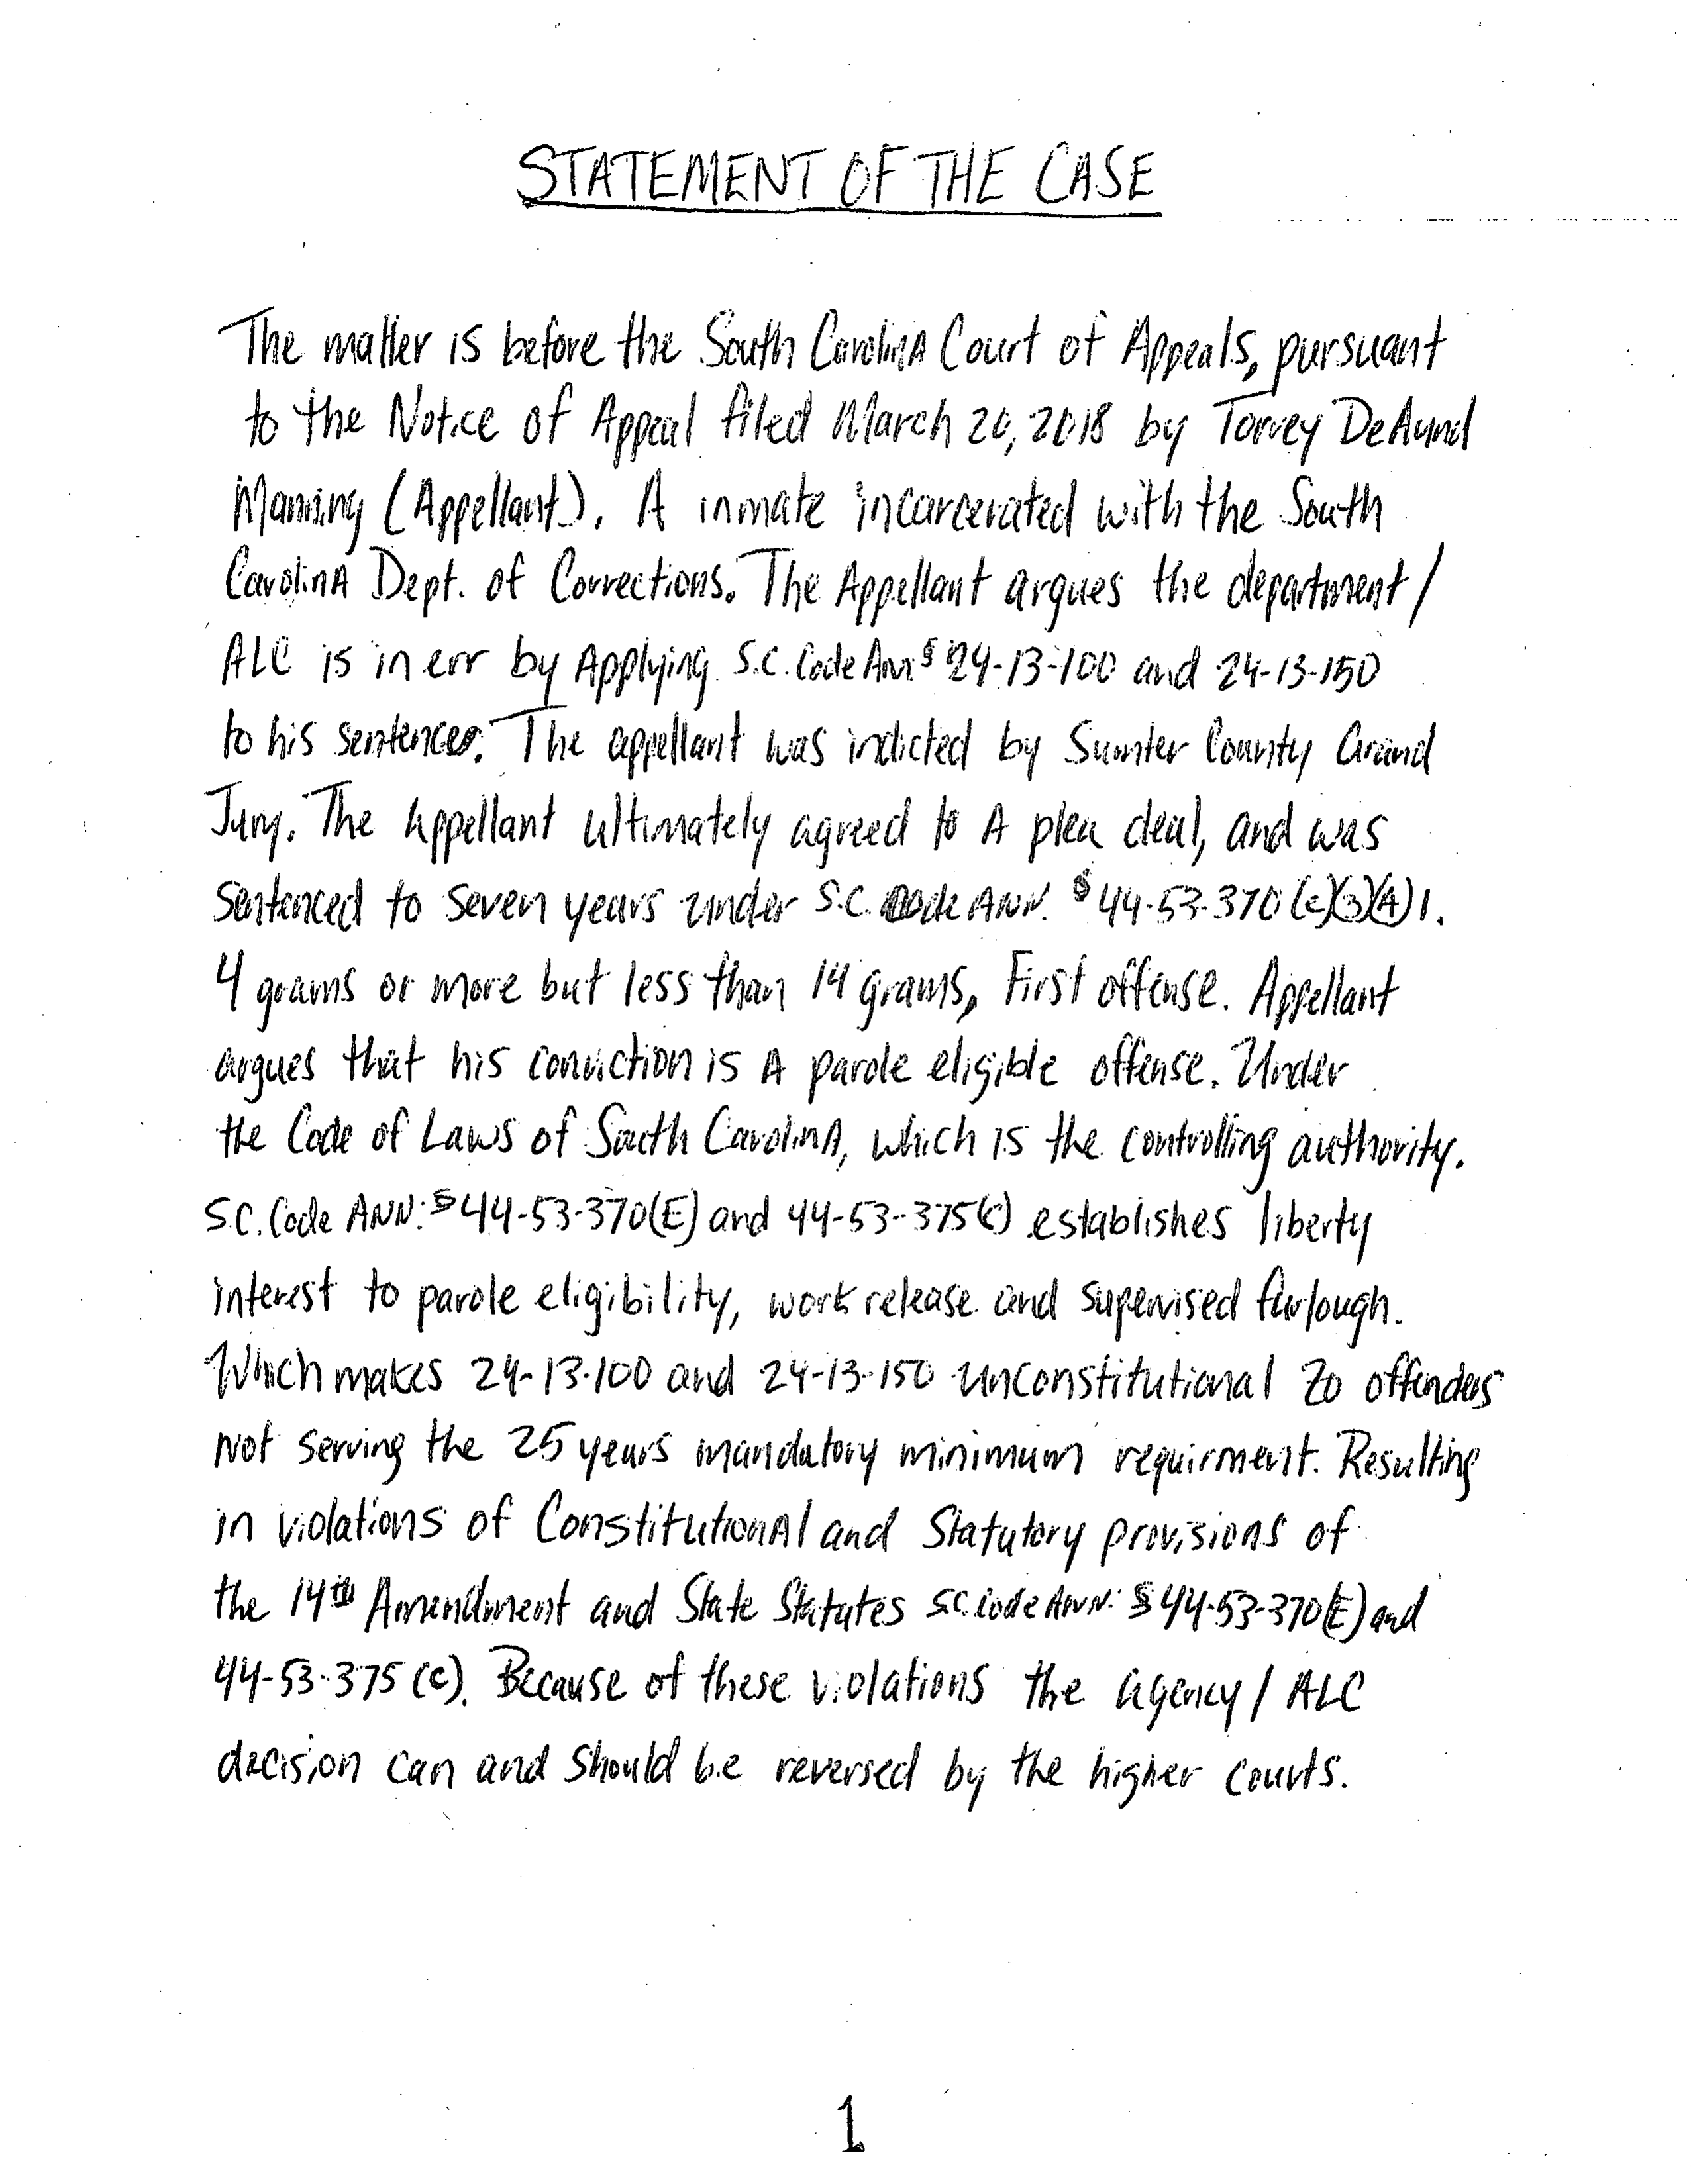 STATEMENT OF THE CASE
The matter is before the South CarolinA Court of Appeals, pursuant
to the Notice of Appeal filed March 20, 2018 by Torrey DeAund
Manning (Appellant). A inmate incarcerated with the South
CarolinA Dept. of Corrections. The Appellant argues the department/
ALC is in err by Applying S.C. Code Ann § 24-13-100 and 24-13-150
to his sentences. The appellant was indicted by Sumter County Grand
Jury. The Appellant ultimately agreed to A plea deal, and was
sentenced to seven years under S.C. Code ANN. § 44-53-370 (e)(3)(A) 1.
4 grams or more but less than 14 grams, First offense. Appellant
argues that his conviction is A parole eligible offense. Under
the Code of Laws of South CarolinA, which is the controlling authority.
S.C. Code ANN: § 44-53-370(E) and 44-53-375(c) establishes liberty
interest to parole eligibility, work release and supervised furlough.
Which makes 24-13-100 and 24-13-150 unconstitutional to offenders
not serving the 25 years mandatory minimum requirment. Resulting
in violations of ConstitutionAl and Statutory provisions of
the 14th Amendment and State Statutes S.C. Code ANN: § 44-53-370(E) and
44-53-375 (c). Because of these violations the agency/ALC
decision can and should be reversed by the higher courts.
1